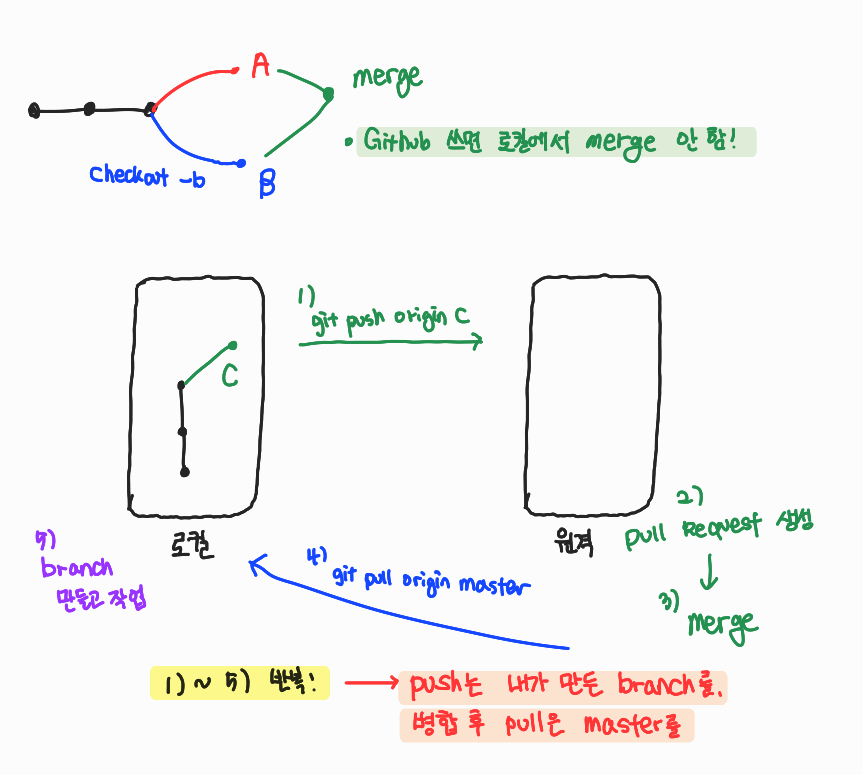 A
merge
• Github 쓰면 로컬에서 merge 안 함!
checkout -b
B
1)
git push origin C
C
로컬
원격
2)
pull Request 생성
3)
merge
4)
git pull origin master
5)
branch
만들고 작업
1) ~ 5) 반복!
push는 내가 만든 branch를,
병합 후 pull은 master를